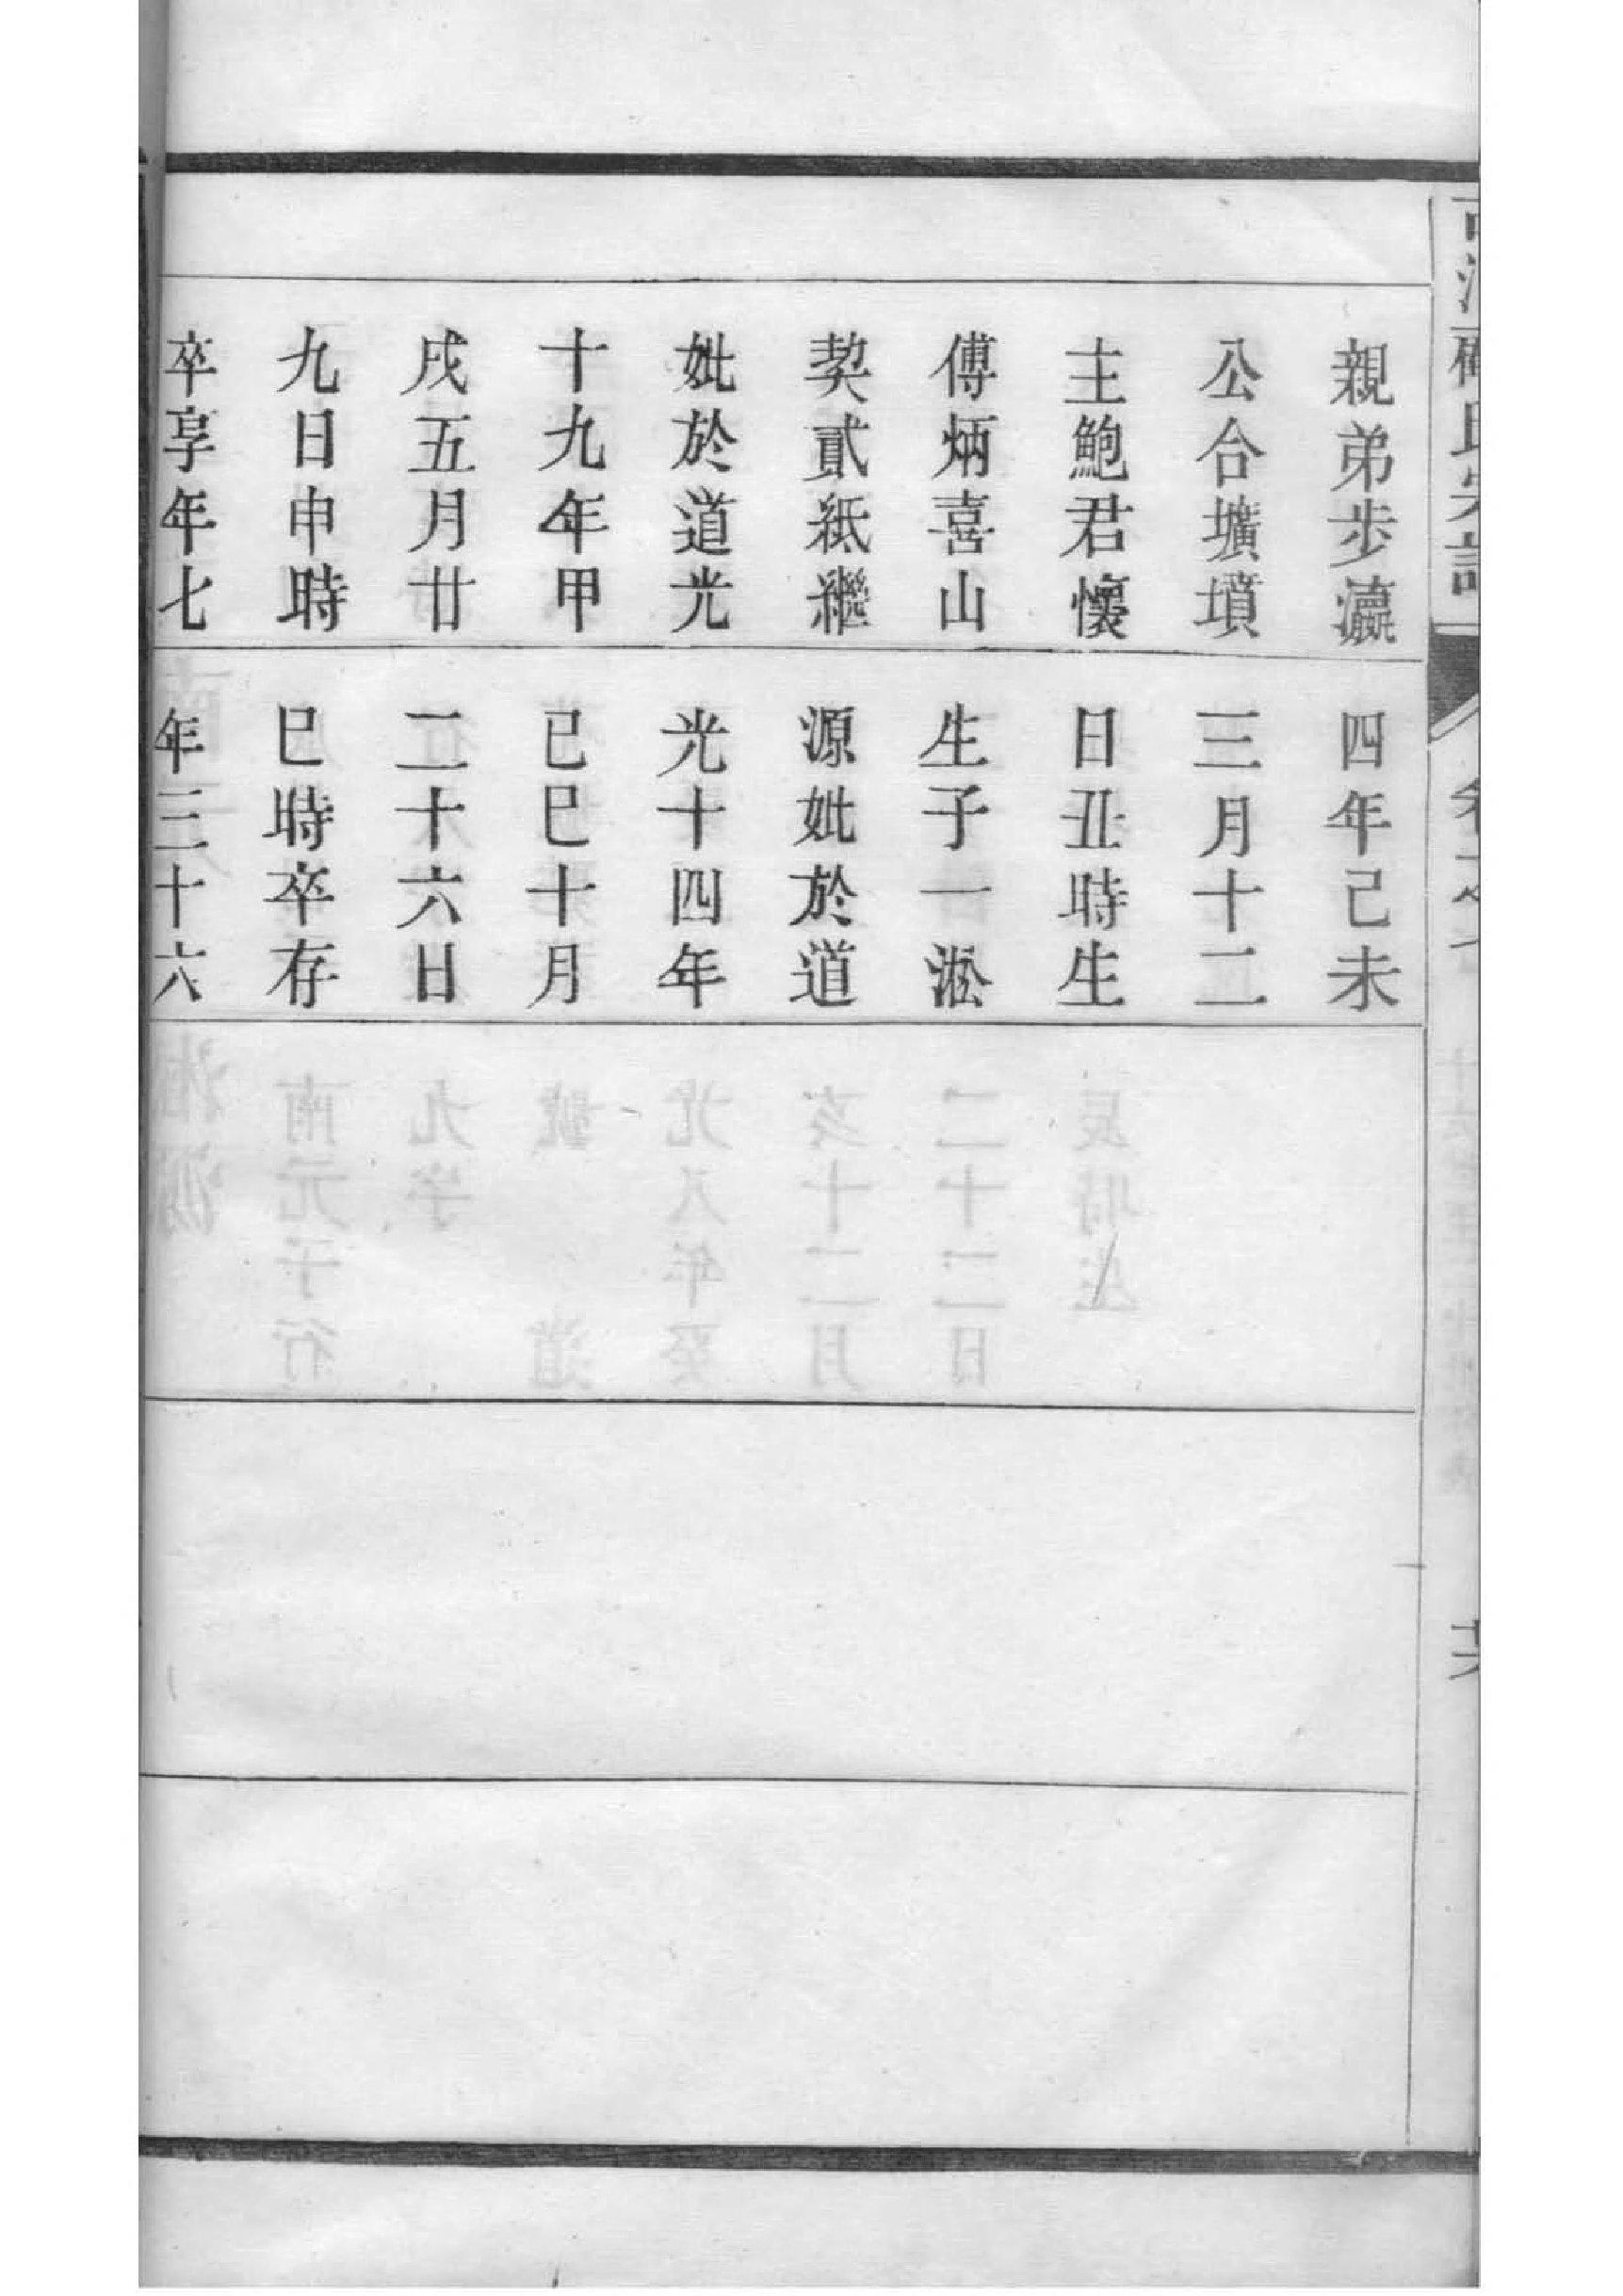 親弟步瀛
公合壙墳
主鮑君懷
傅炳喜山
契貳紙繼
妣於道光
十九年甲
戌五月廿
九日申時
卒享年七
四年己未
三月十二
日丑時生
生子一淞
源妣於道
光十四年
已巳十月
二十六日
巳時卒存
年三十六